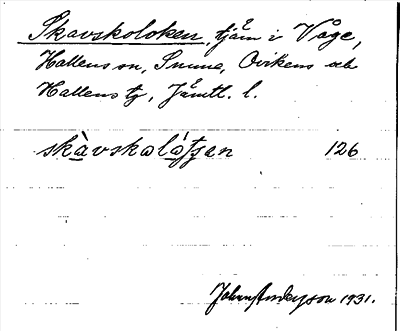 Skavskoloken, tjärn i Våge,
Hallens sn, Sunne, Ovikens och
Hallens tg, Jämtl. l.
skàvskaláʃʃen 126
John Anderson 1931.